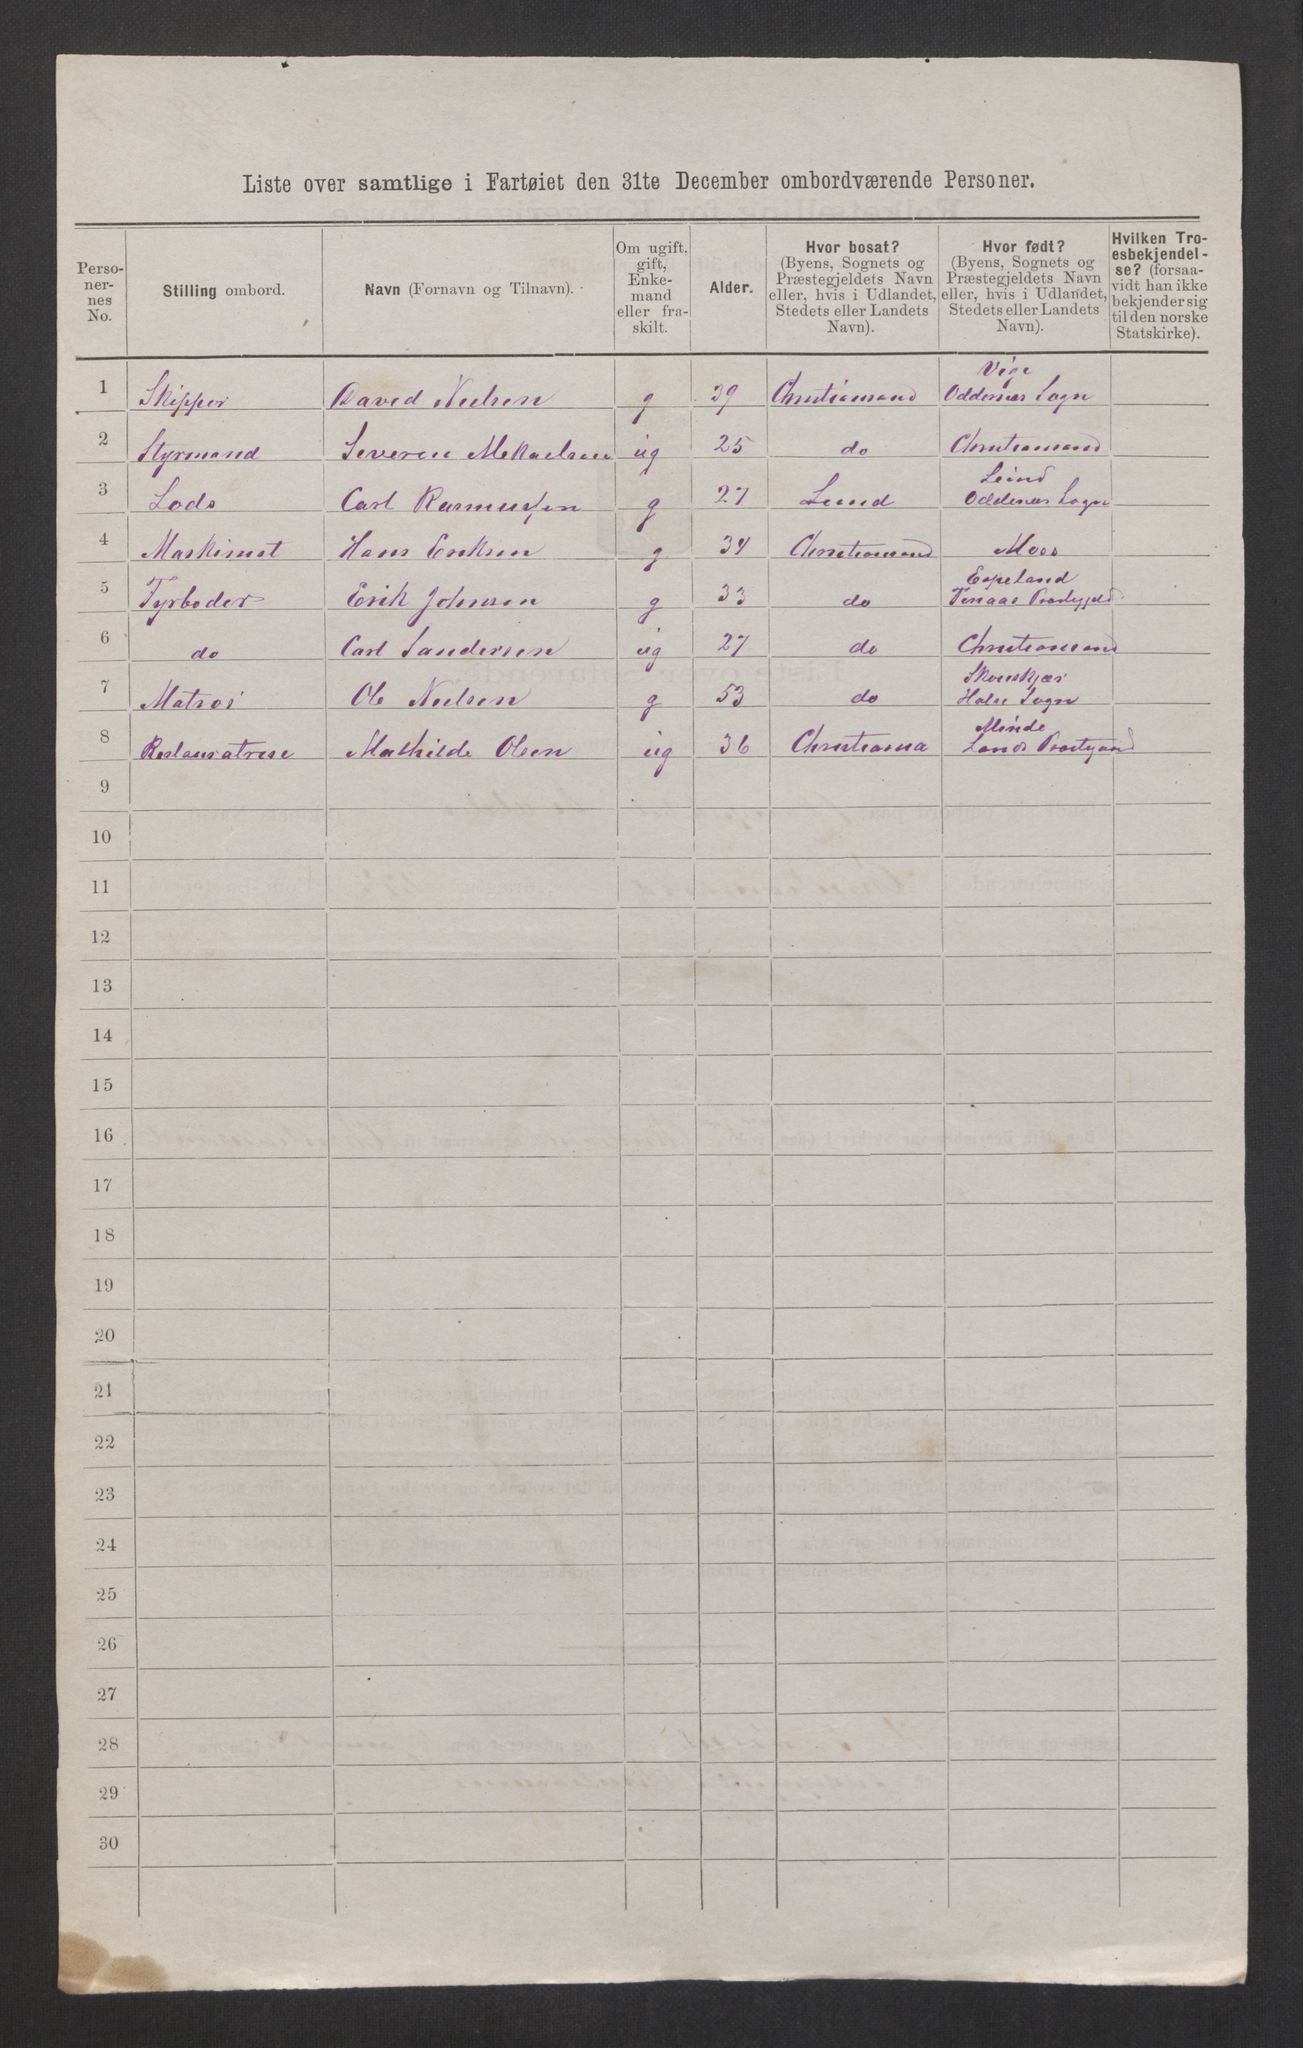 Liste over samtlige i Fartøiet den 31te December ombordværende Personer.
Perso-nernes No. | Stilling ombord. | Navn (Fornavn og Tilnavn). | Om ugift, gift, Enkemand eller fraskilt. | Alder. | Hvor bosat? (Byens, Sognets og Præstegjeldets Navn eller, hvis i Udlandet, Stedets eller Landets Navn). | Hvor født? (Byens, Sognets og Præstegjeldets Navn eller, hvis i Udlandet, Stedets eller Landets Navn). | Hvilken Troesbekjendelse? (forsaavidt han ikke bekjender sig til den norske Statskirke).
1 Skipper David Nielsen g 39 Christiansand Vige Oddernæs Sogn
2 Styrmand Severin Mekaelsen ug 25 do Christiansand
3 Lods Carl Rasmussen g 27 Lund Lund Oddernæs Sogn
4 Maskinist Hans Eriksen g 34 Christiansand Moss
5 Fyrbøder Erik Johnsen g 33 do Espeland
6 do Carl Sandersen ug 27 do Christiansand
7 Matros Ole Nielsen g 53 do Halse Sogn
8 Restauratrise Mathilde Olsen ug 36 Christiania Minde
9
10
11
12
13
14
15
16
17
18
19
20
21
22
23
24
25
26
27
28
29
30